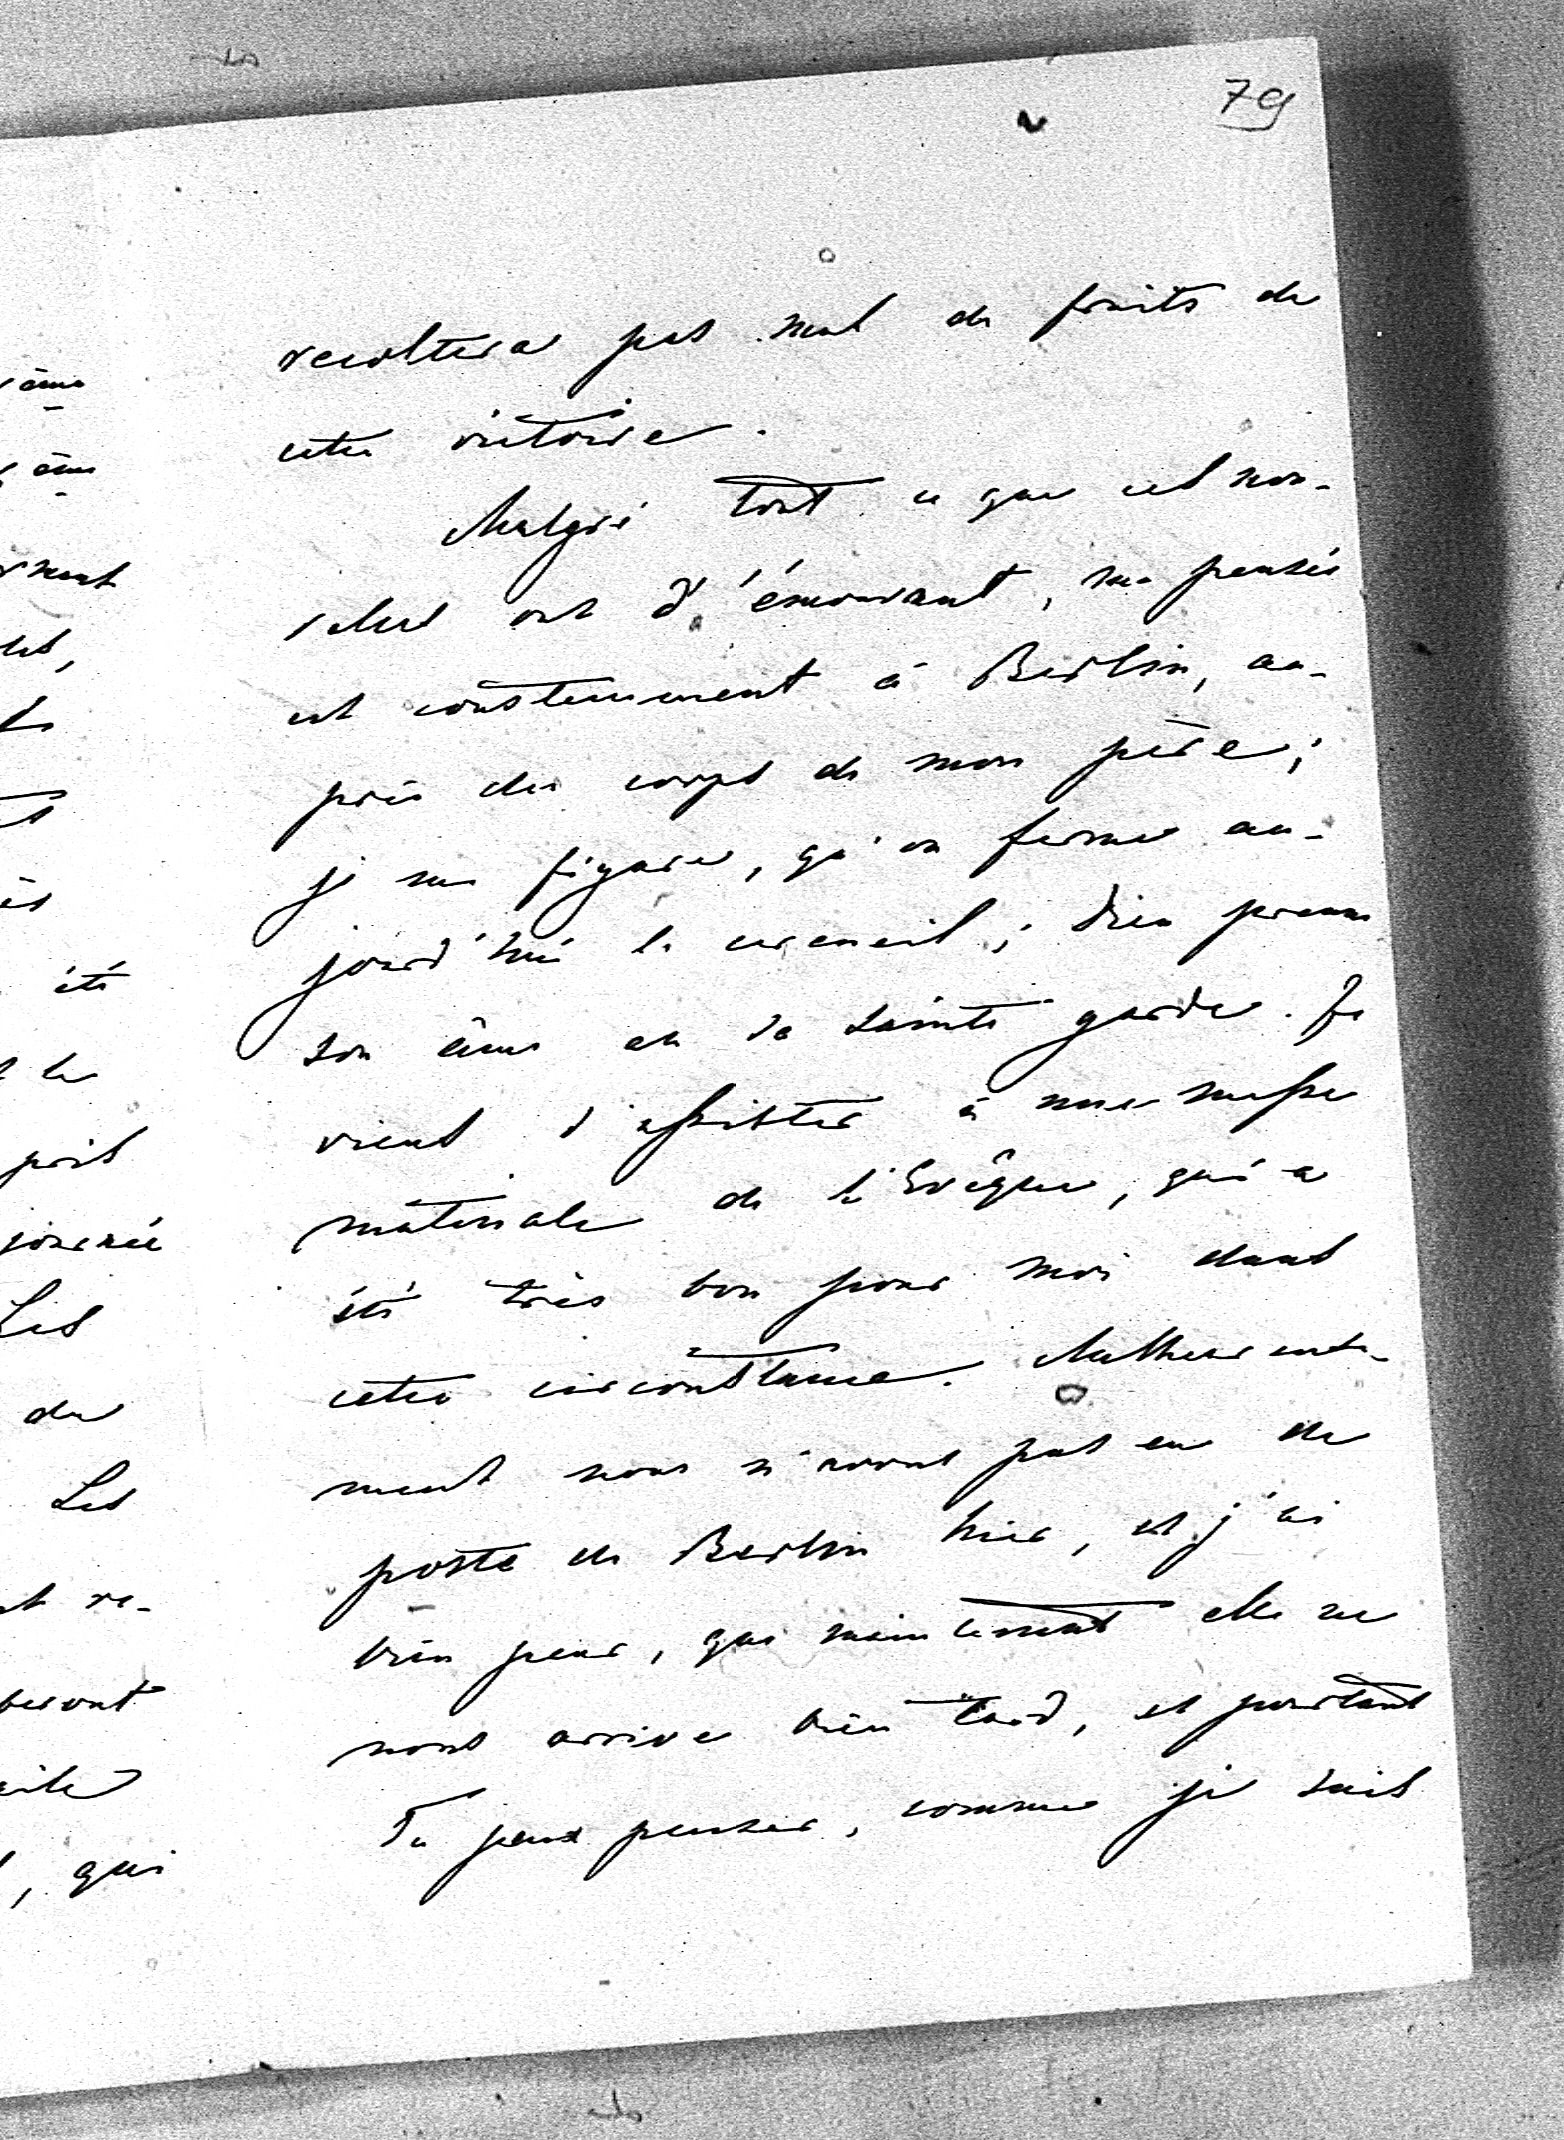 79
recoltera pas mal de fruits de
cette victoire.
Malgré tout ce que ces nou-
velles ont d'émouvant, ma pensée
est constamment à Berlin, au-
près du corps de mon père;
je me figure, qu'on ferme au-
jourd'hui le cercueil; Dieu prenne
son âme en sa sainte garde. Je
viens d'assister à une messe
matinale de l'Evêque, qui a
été très bon pour moi dans
cette circonstance. Malheureuse-
ment nous n'avons pas eu de
poste de Berlin hier, et j'ai
bien peur, que maintenant elle ne
nous arrive bien tard, et pourtant
Tu peux penser, comme je suis
âme
âme
été
journée
Les
de
Les
re-
, qui